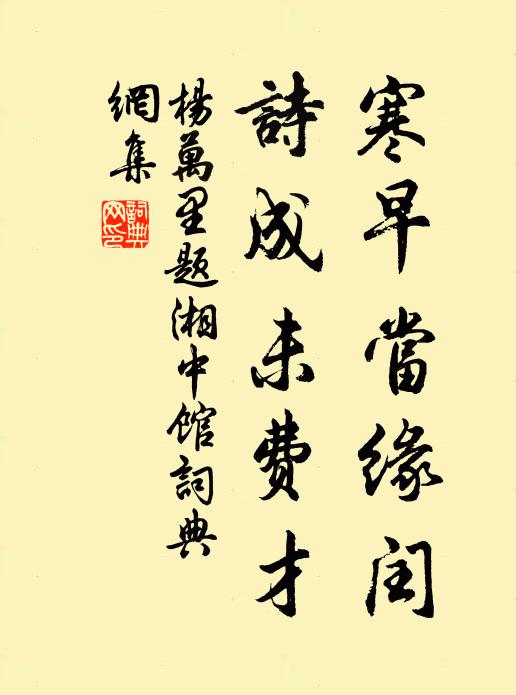 寒早當緣閏
詩成未費才
楊萬里題湘中館詞典
網集
詞典網印